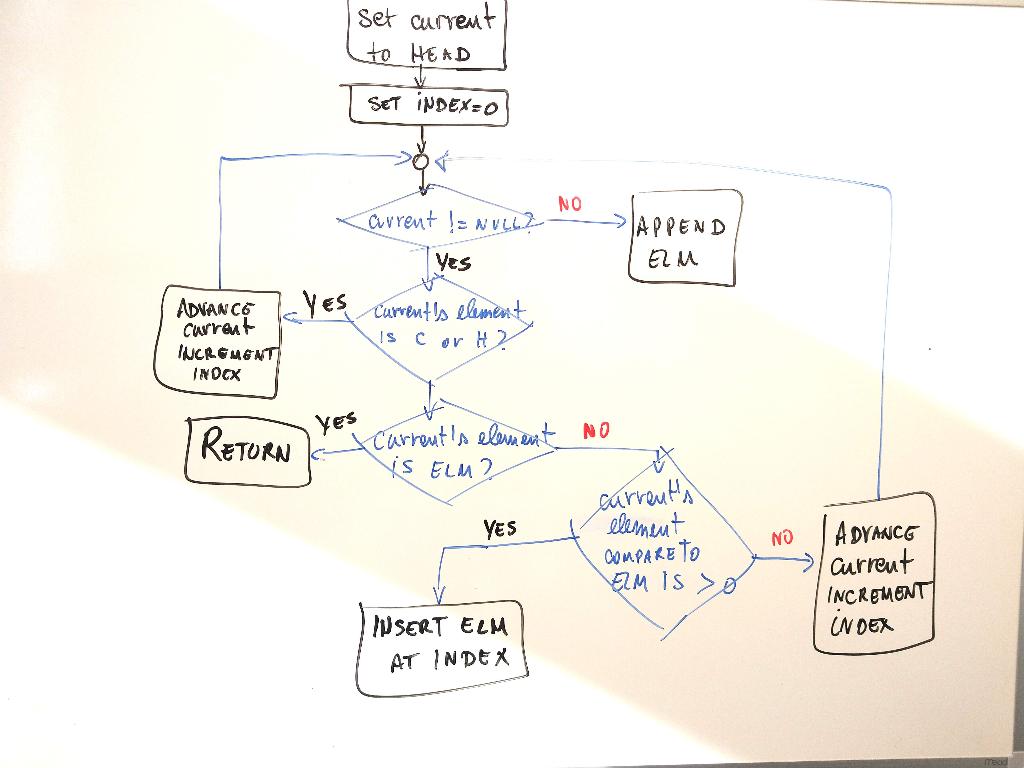 Set current
to HEAD
SET INDEX=0
current != NULL?
NO
APPEND
ELM
YES
current's element
is C or H?
YES
ADVANCE
current
INCREMENT
INDEX
current's element
is ELM?
YES
RETURN
NO
current's
element
COMPARETO
ELM IS > 0
YES
INSERT ELM
AT INDEX
NO
ADVANCE
current
INCREMENT
INDEX
Mead